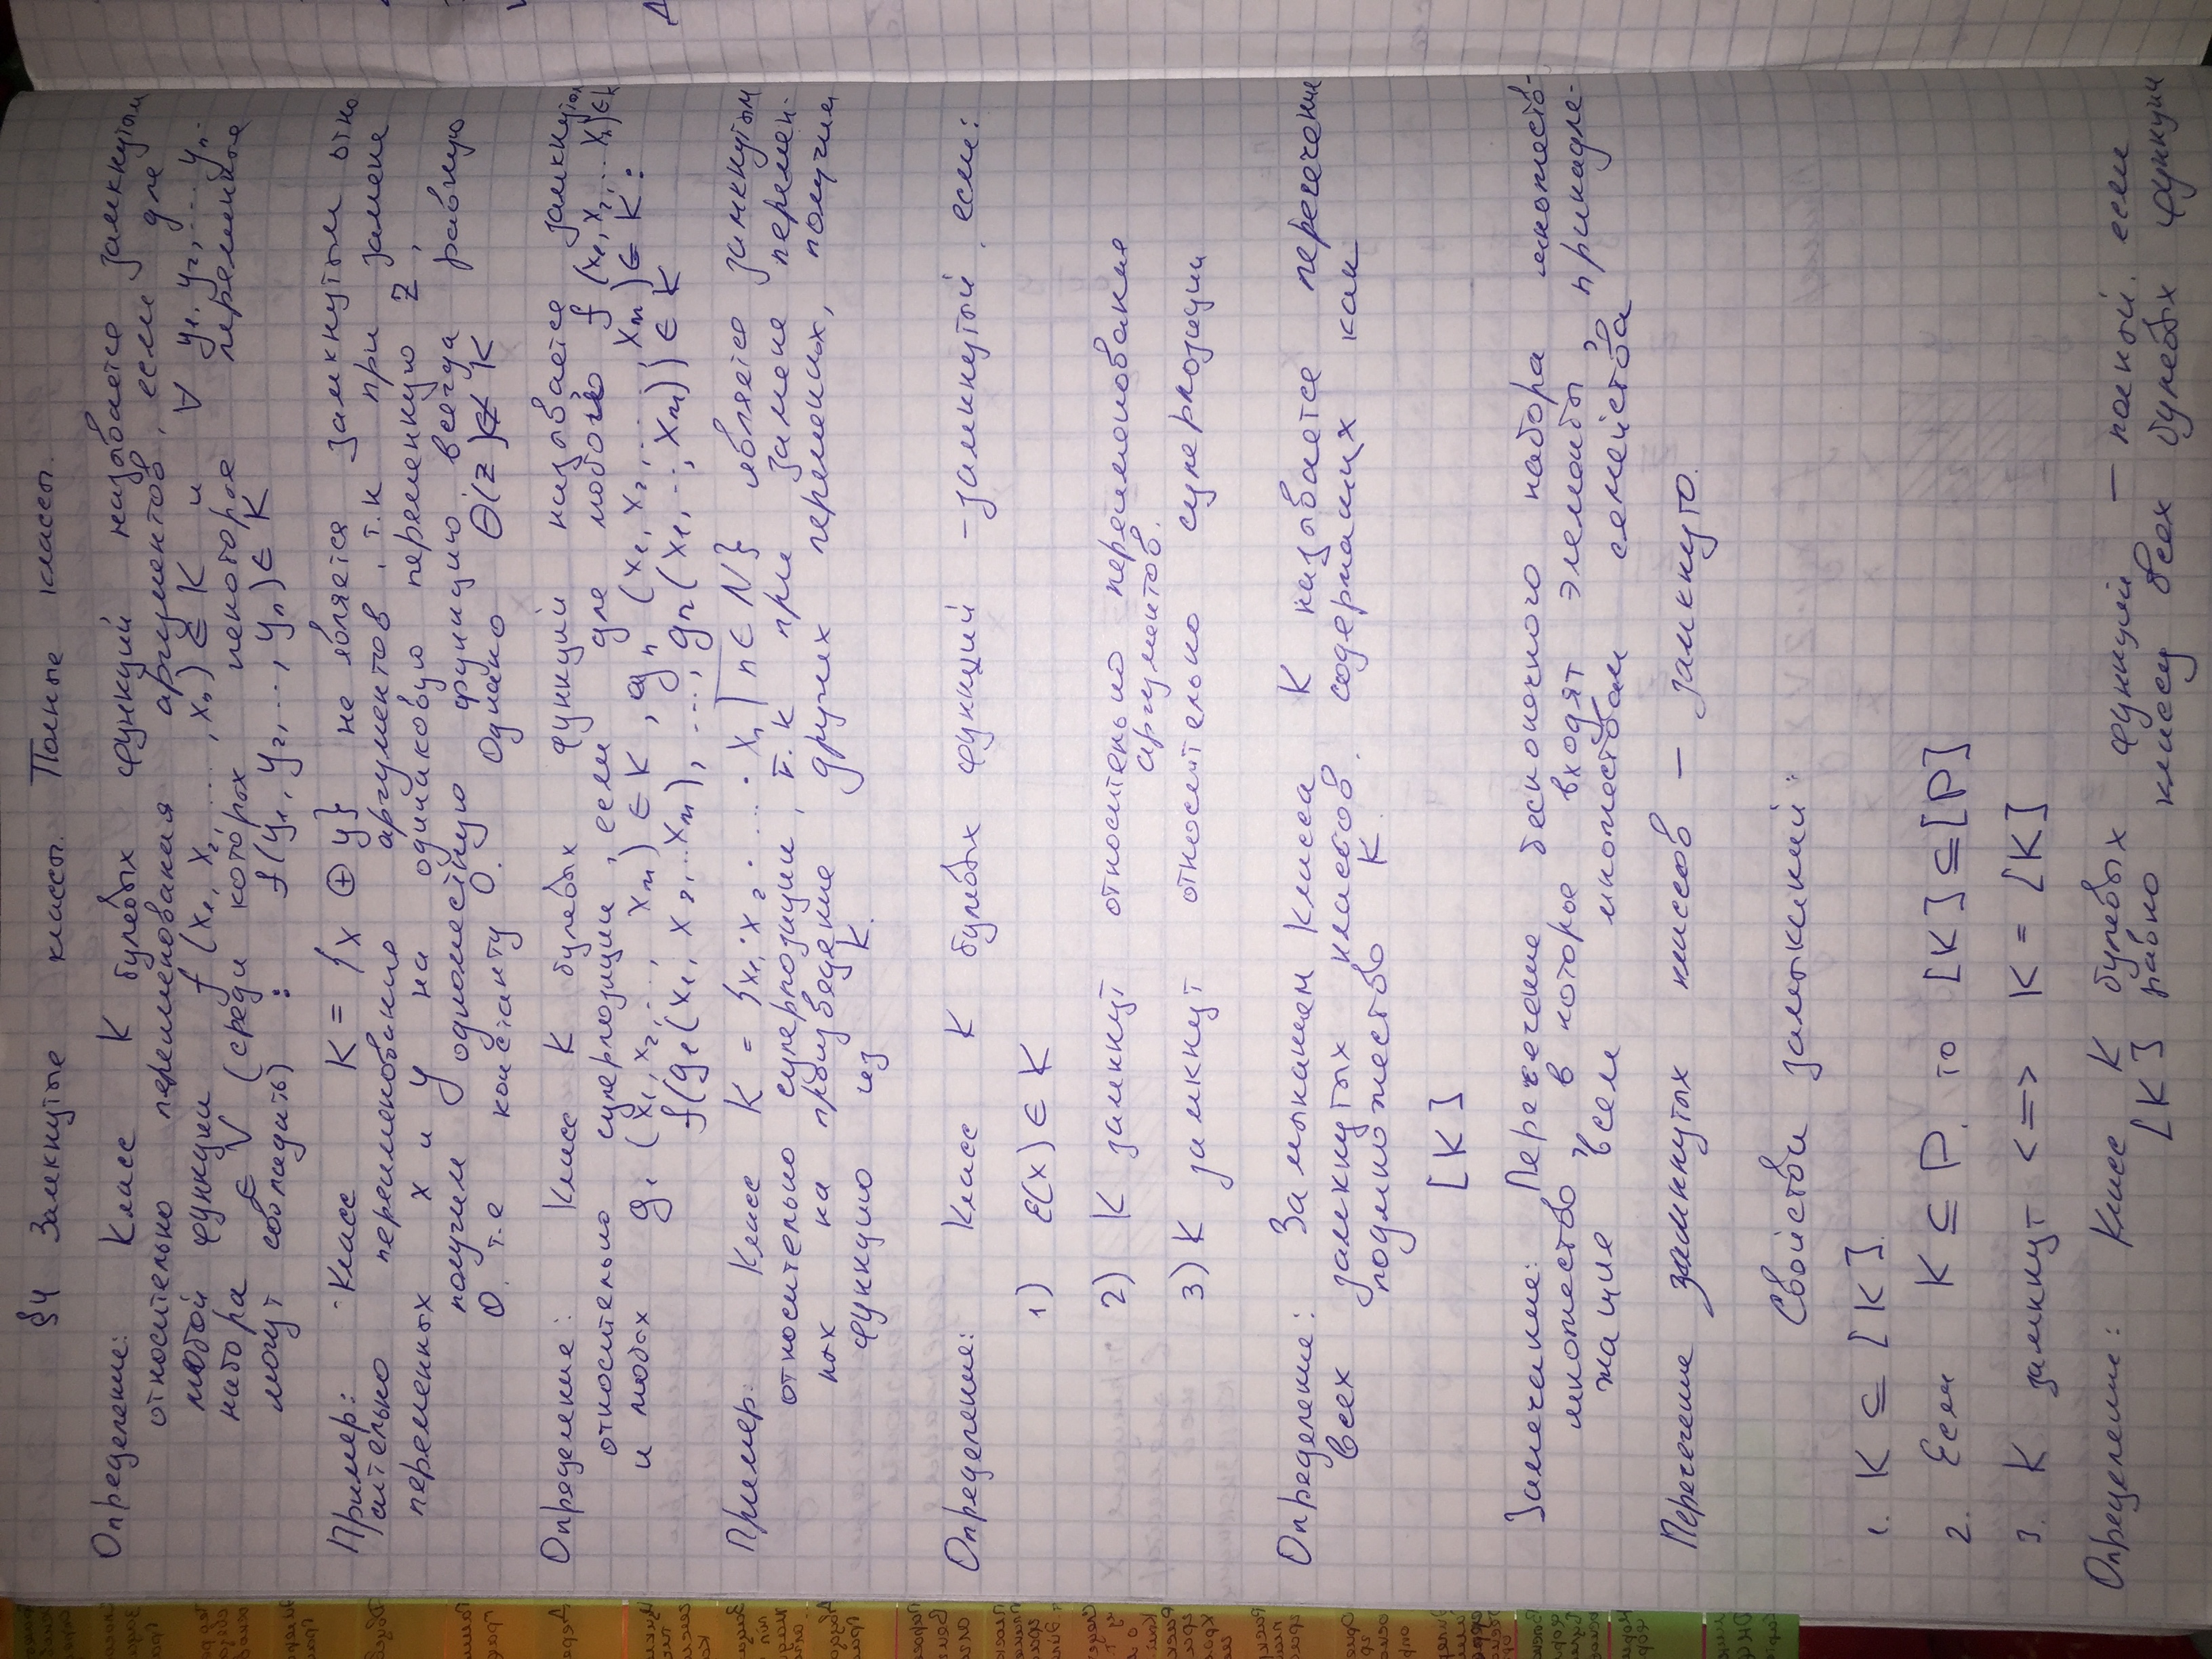 §4 Замкнутые классы. Полные классы.
Определение: Класс K булевых функций называется замкнутым
относительно переименования аргументов, если для
любой функции f (x₁, x₂, ..., xₙ) ∈ K и ∀ y₁, y₂, ... yₙ.
набора ∈ V (среди которых некоторые переменные
могут совпадать) : f(y₁, y₂, .., yₙ) ∈ K
Пример: Класс K = {x ⊕ y} не является замкнутым отно
сительно переименование аргументов, т.к при замене
переменных x и y на одинаковую переменную z,
получим одноместную функцию, всегда равную
0, т.е константу 0. Однако Θ(z) ∉ K
Определение: Класс K булевых функций называется замкнутым
относительно суперпозиции, если для любого f (x₁, x₂, ... xₙ) ∈ K
и любых g₁ (x₁, x₂, ..., xₘ) ∈ K, gₙ (x₁, x₂, ..., xₘ) ∈ K :
f(g₁(x₁, x₂, .. xₘ), ..., gₙ(x₁, .., xₘ)) ∈ K
Пример: Класс K = {x₁·x₂· ... ·xₙ | n ∈ N} является замкнутым
относительно суперпозиции, т.к при замене перемен-
ных на произведение других переменных, получим
функцию из K.
Определение: Класс K булевых функций – замкнутый, если:
1) ε(x) ∈ K
2) K замкнут относительно переименование
аргументов.
3) K замкнут относительно суперпозиции
Определение: Замыканием класса K называется пересечение
всех замкнутых классов, содержащих как
подмножество K.
[K]
Замечание: Пересечение бесконечного набора множеств-
множество, в которое входят элементы, принадле-
жащие всем множествам семейства
Пересечение замкнутых классов – замкнуто.
Свойства замыканий:
1. K ⊆ [K].
2. Если K ⊆ P, то [K] ⊆ [P]
3. K замкнут <=> K = [K]
Определение: Класс K булевых функций – полный, если
[K] равно классу всех булевых функций